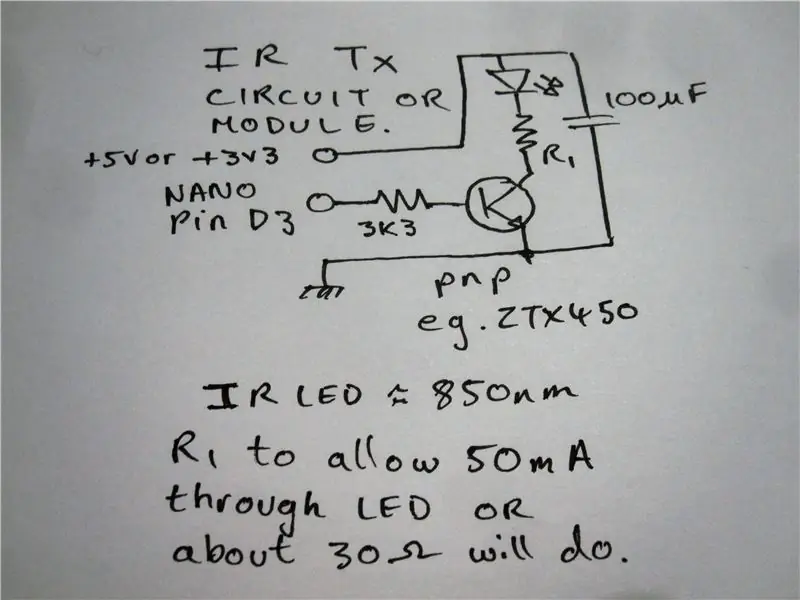 IR Tx
CIRCUIT OR
MODULE.
100µF
+5V or +3V3
R1
NANO
Pin D3
3K3
pnp
eg. ZTX450
IR LED ≈ 850nm
R1 to allow 50mA
through LED OR
about 30Ω will do.